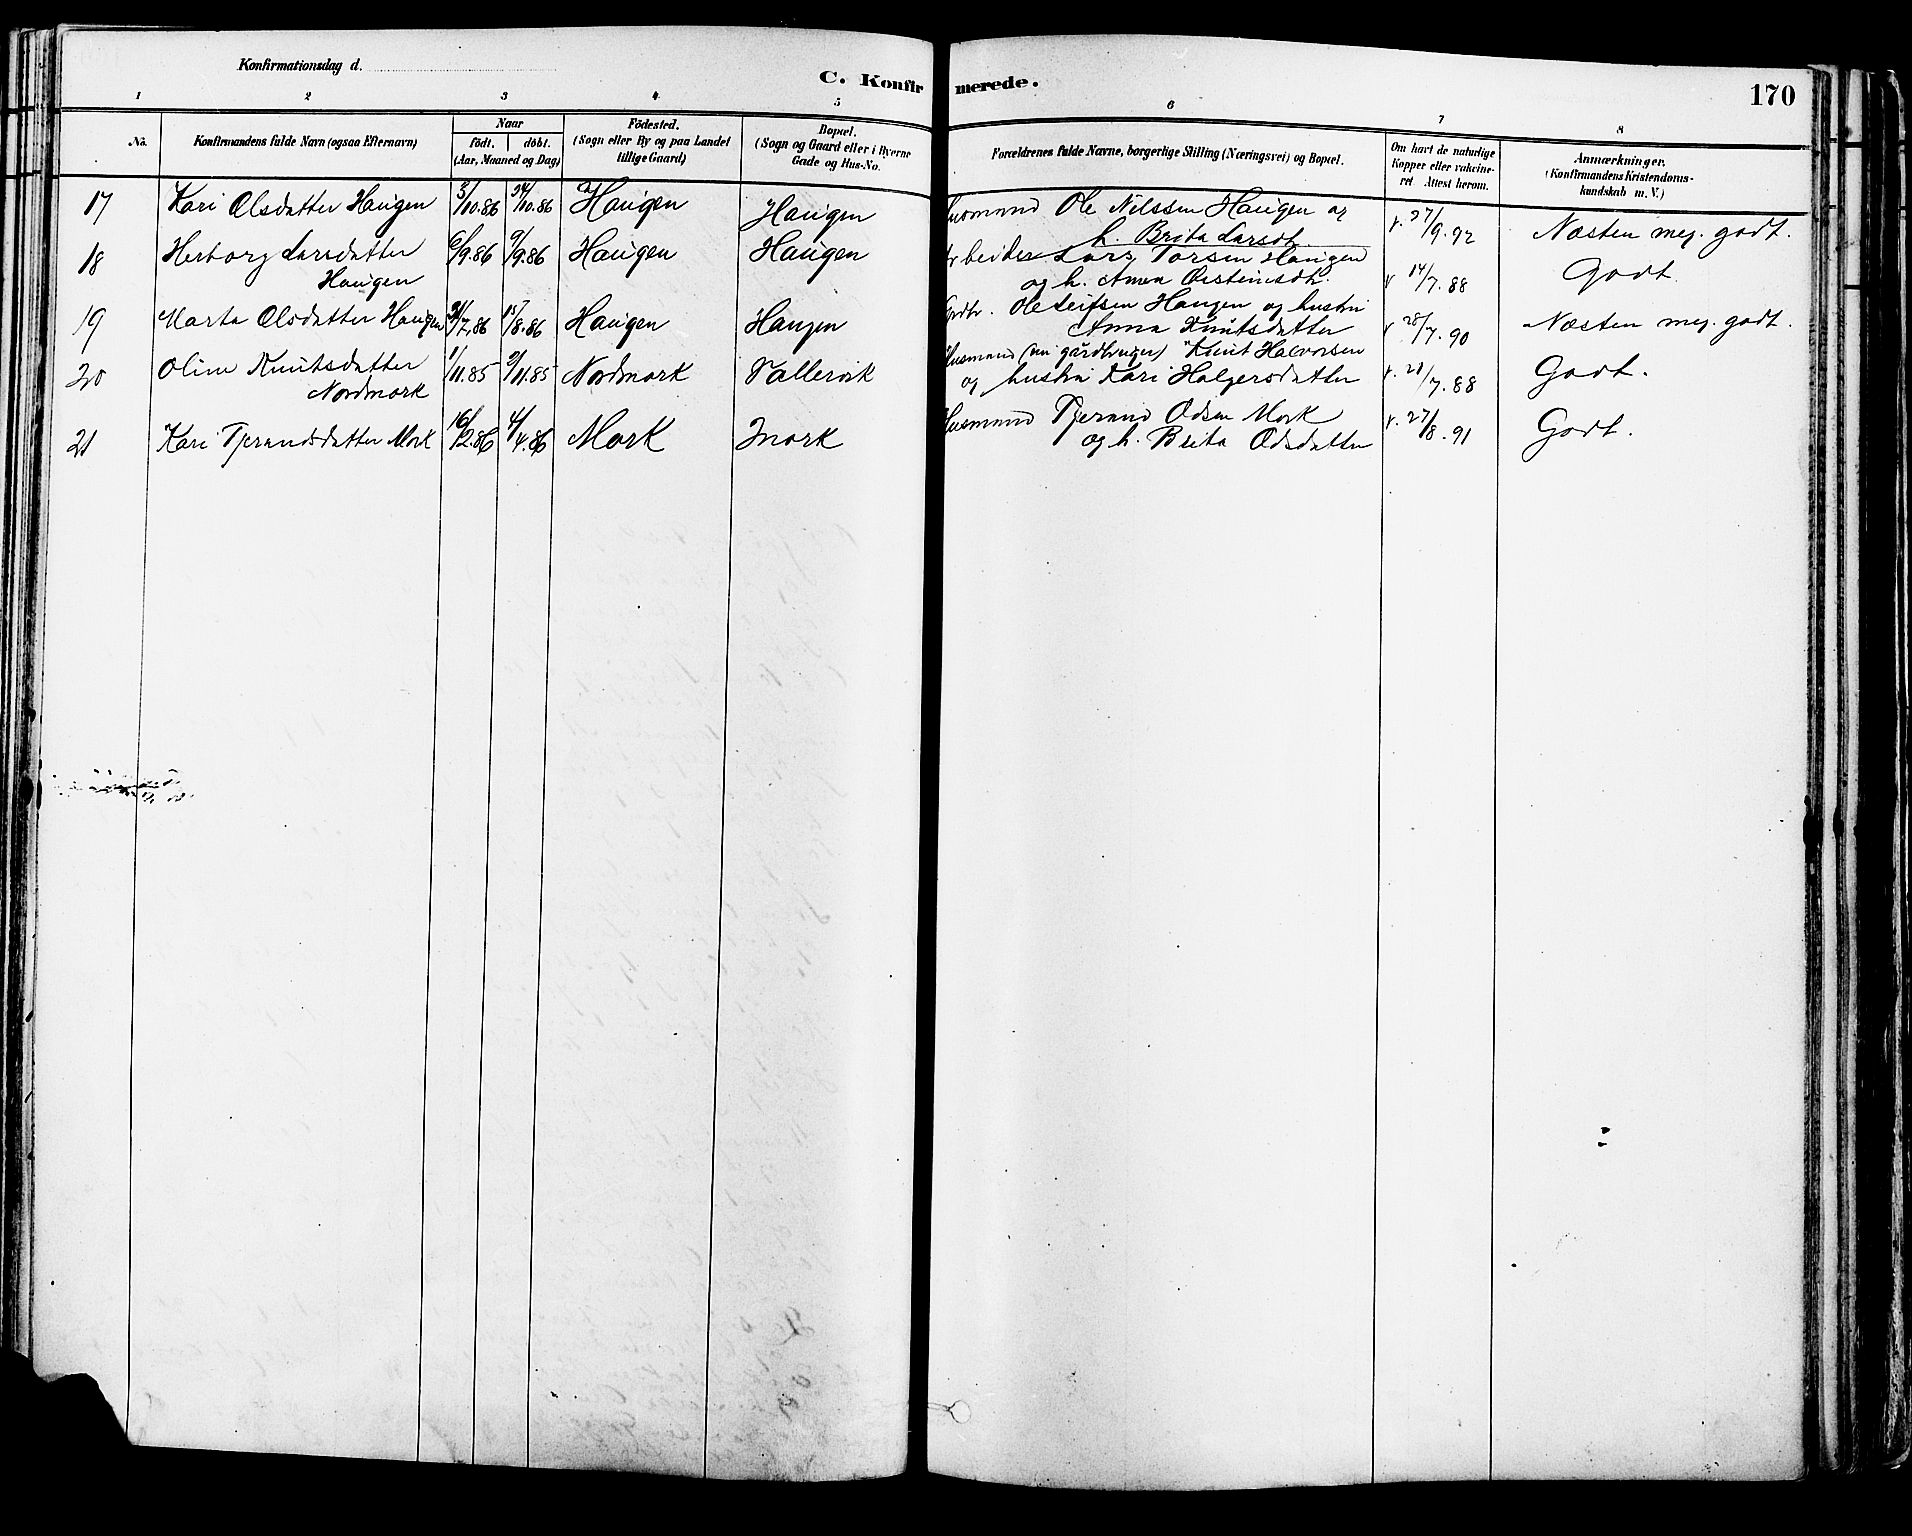 Konfirmationsdag d.
C. Konfirmerede.
170
1 2 3 4 5 6 7 8
No. Konfirmandens fulde Navn (ogsaa Efternavn) Naar født. døbt. (Aar, Maaned og Dag) Födested. (Sogn eller By og paa Landet tillige Gaard) Bopæl. (Sogn og Gaard eller i Byerne Gade og Hus-No. Forældrenes fulde Navne, borgerlige Stilling (Næringsvei) og Bopæl. Om havt de naturlige Kopper eller vakcineret. Attest herom. Anmærkninger. (Konfirmandens Kristendomskundskab m. V.)
17 Kari Olsdatter Haugen 3/10.86 24/10.86 Haugen Haugen Husmand Ole Nilssen Haugen og v. 27/9.92 Næsten meg. godt.
h. Brita Larsdt.
18 Herborg Larsdatter 6/9.86 9/9.86 Haugen Haugen Arbeider Lars Torsen Haugen v 14/7.88 Godt.
Haugen og h. Anna Øisteinsdt.
19 Marta Olsdatter Haugen /7.86 15/8.86 Haugen Haugen Grdbr. Ole Leifsen Haugen og hustru v 28/7.90 Næsten meg. godt.
Anna Knutsdatter
20 Oline Knutsdatter 1/11.85 9/11.85 Nordmork Vallevik Husmand (nu gårdbruger) Knut Halvorsen v. /7.88 Godt.
Nordmork og hustru Kari Holgersdatter
21 Kari Tjerandsdatter Mork 16/2.86 4/4.86 Mork Mork Husmand Tjerand Odsen Mork v. 27/8.91 Godt.
og h. Brita Odsdatter